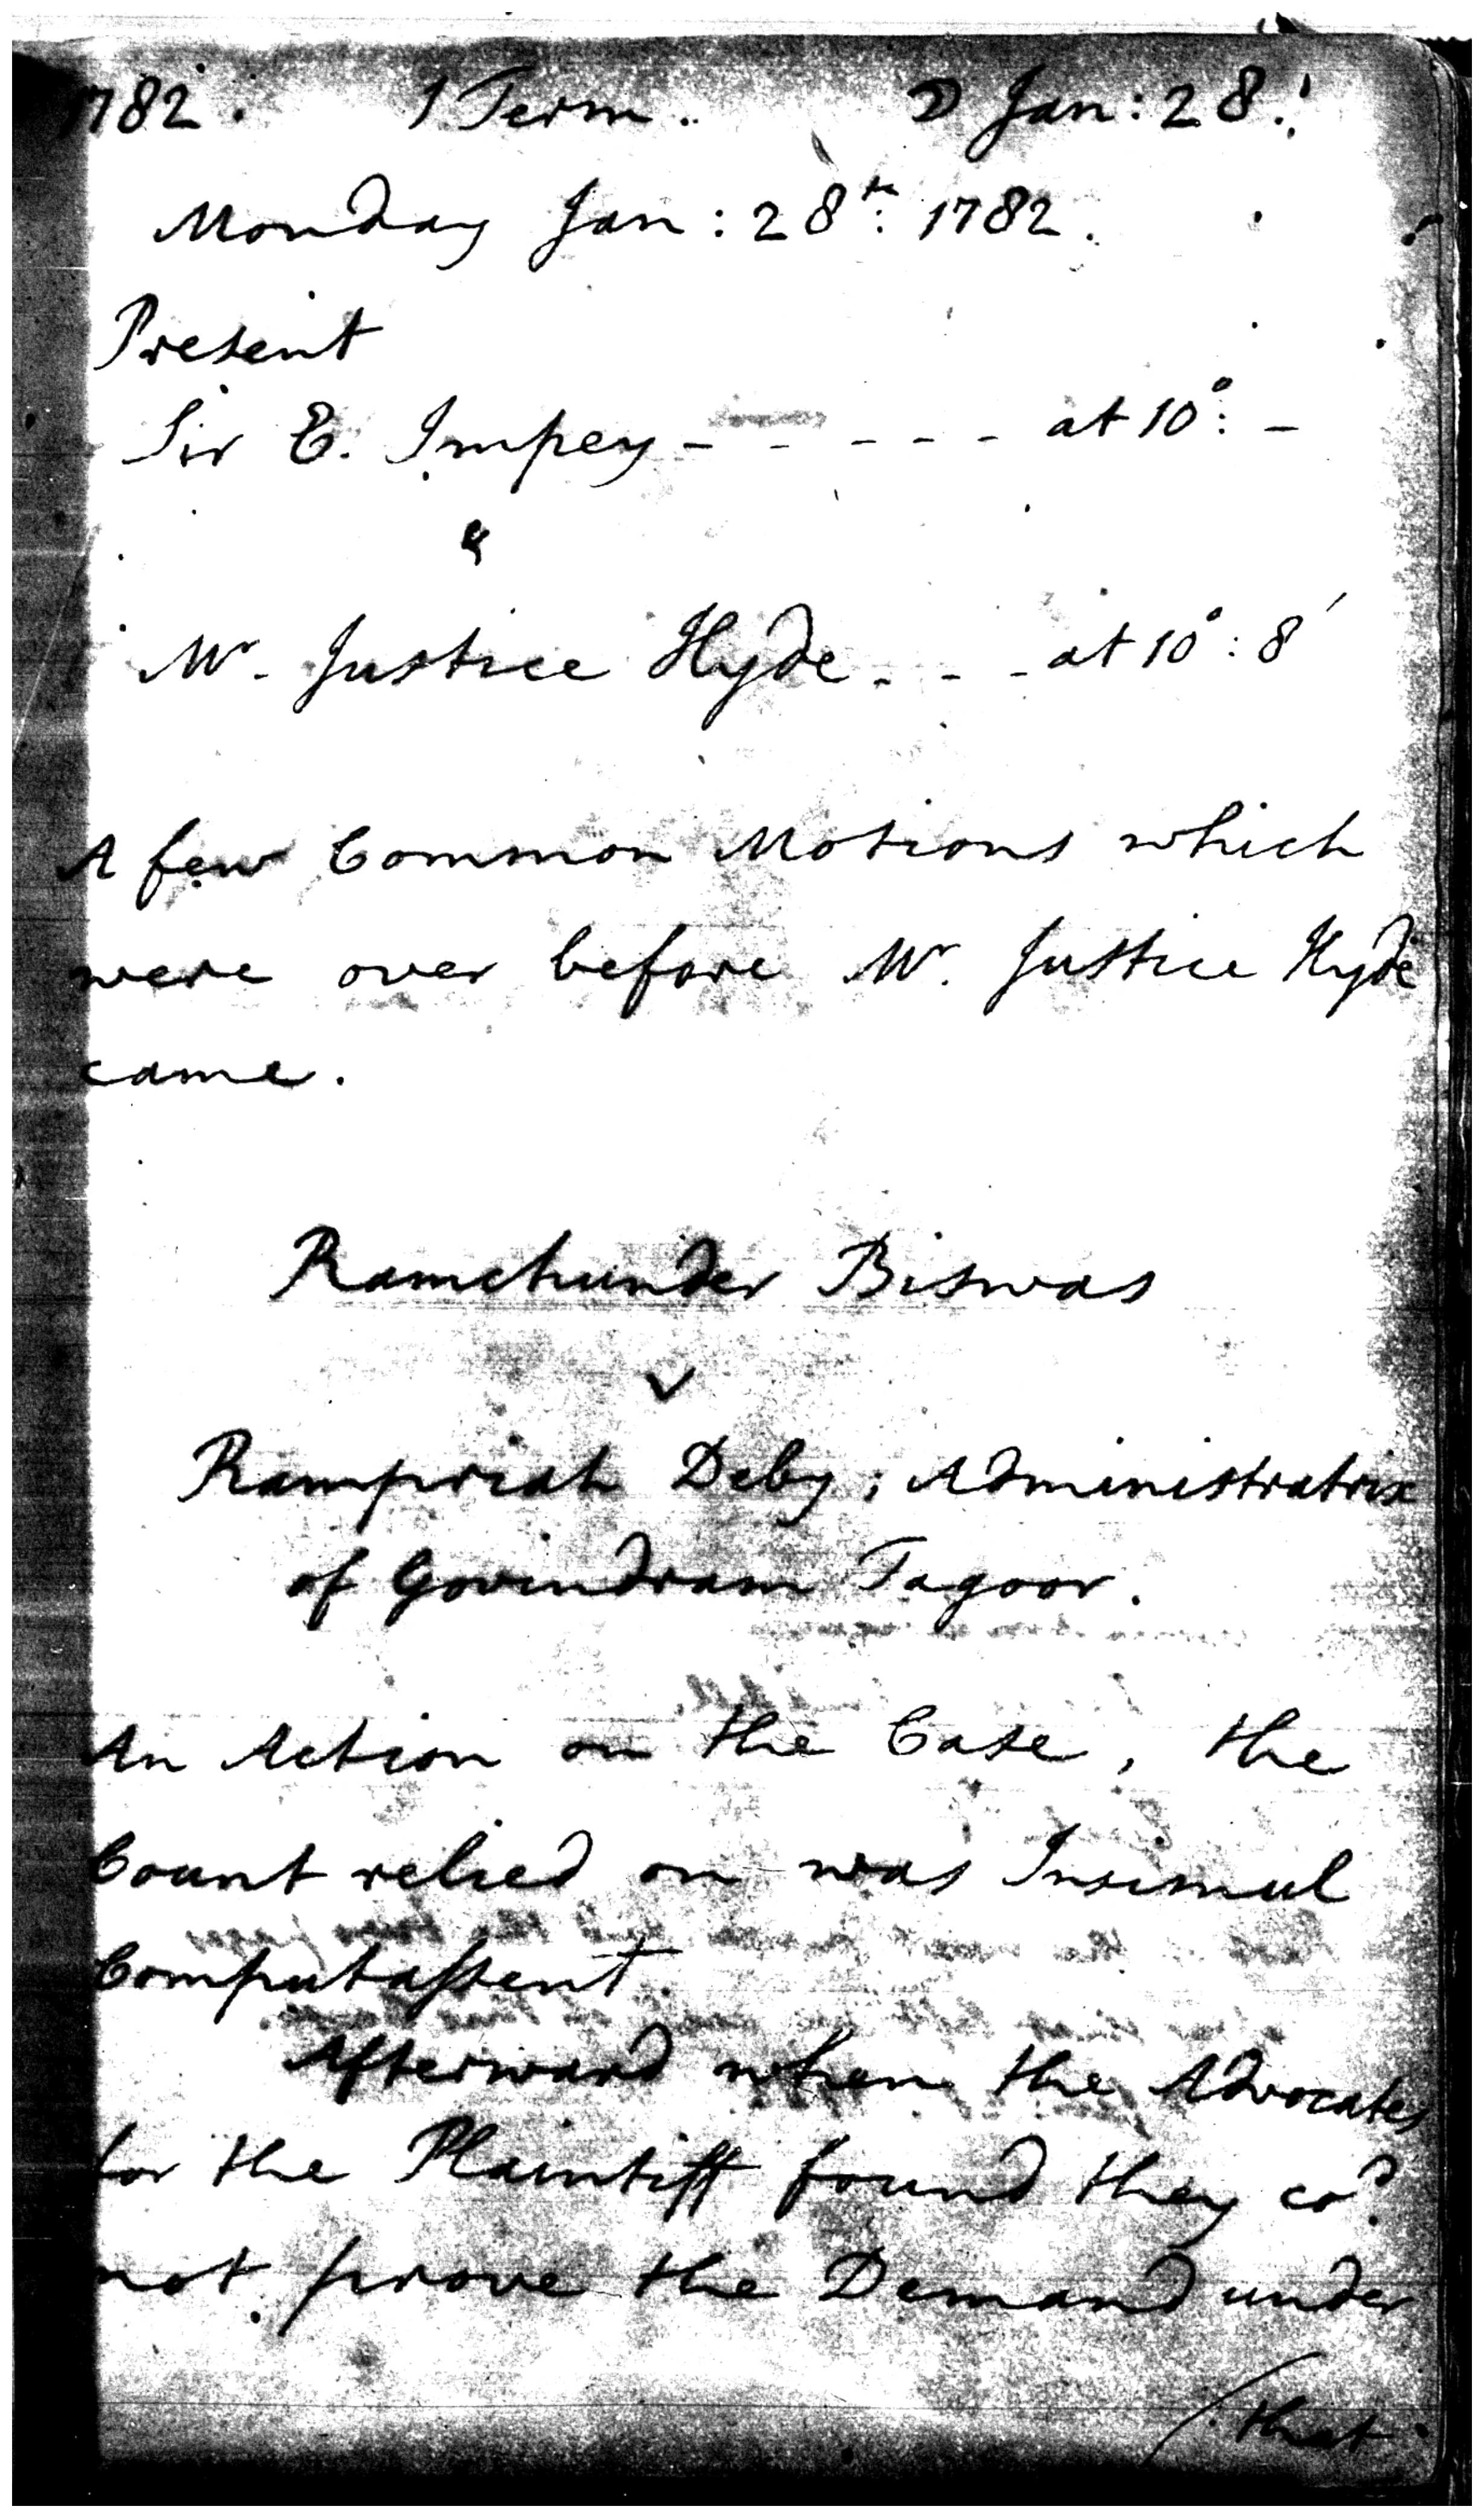 1782. 1 Term. ☽ Jan: 28.
Monday Jan: 28th: 1782.
Present
Sir E. Impey - - - - - at 10°: -
&
Mr. Justice Hyde - - - at 10°: 8'
A few Common Motions which
were over before Mr. Justice Hyde
came.
Ramchunder Biswas
v
Rampriah Deby; Administratrix
of Govindram Tagoor.
An Action on the Case, the
Count relied on was Insimul
Computaſsent.
Afterward when the Advocates
for the Plaintiff found they cod.
not prove the Demand under
/ that